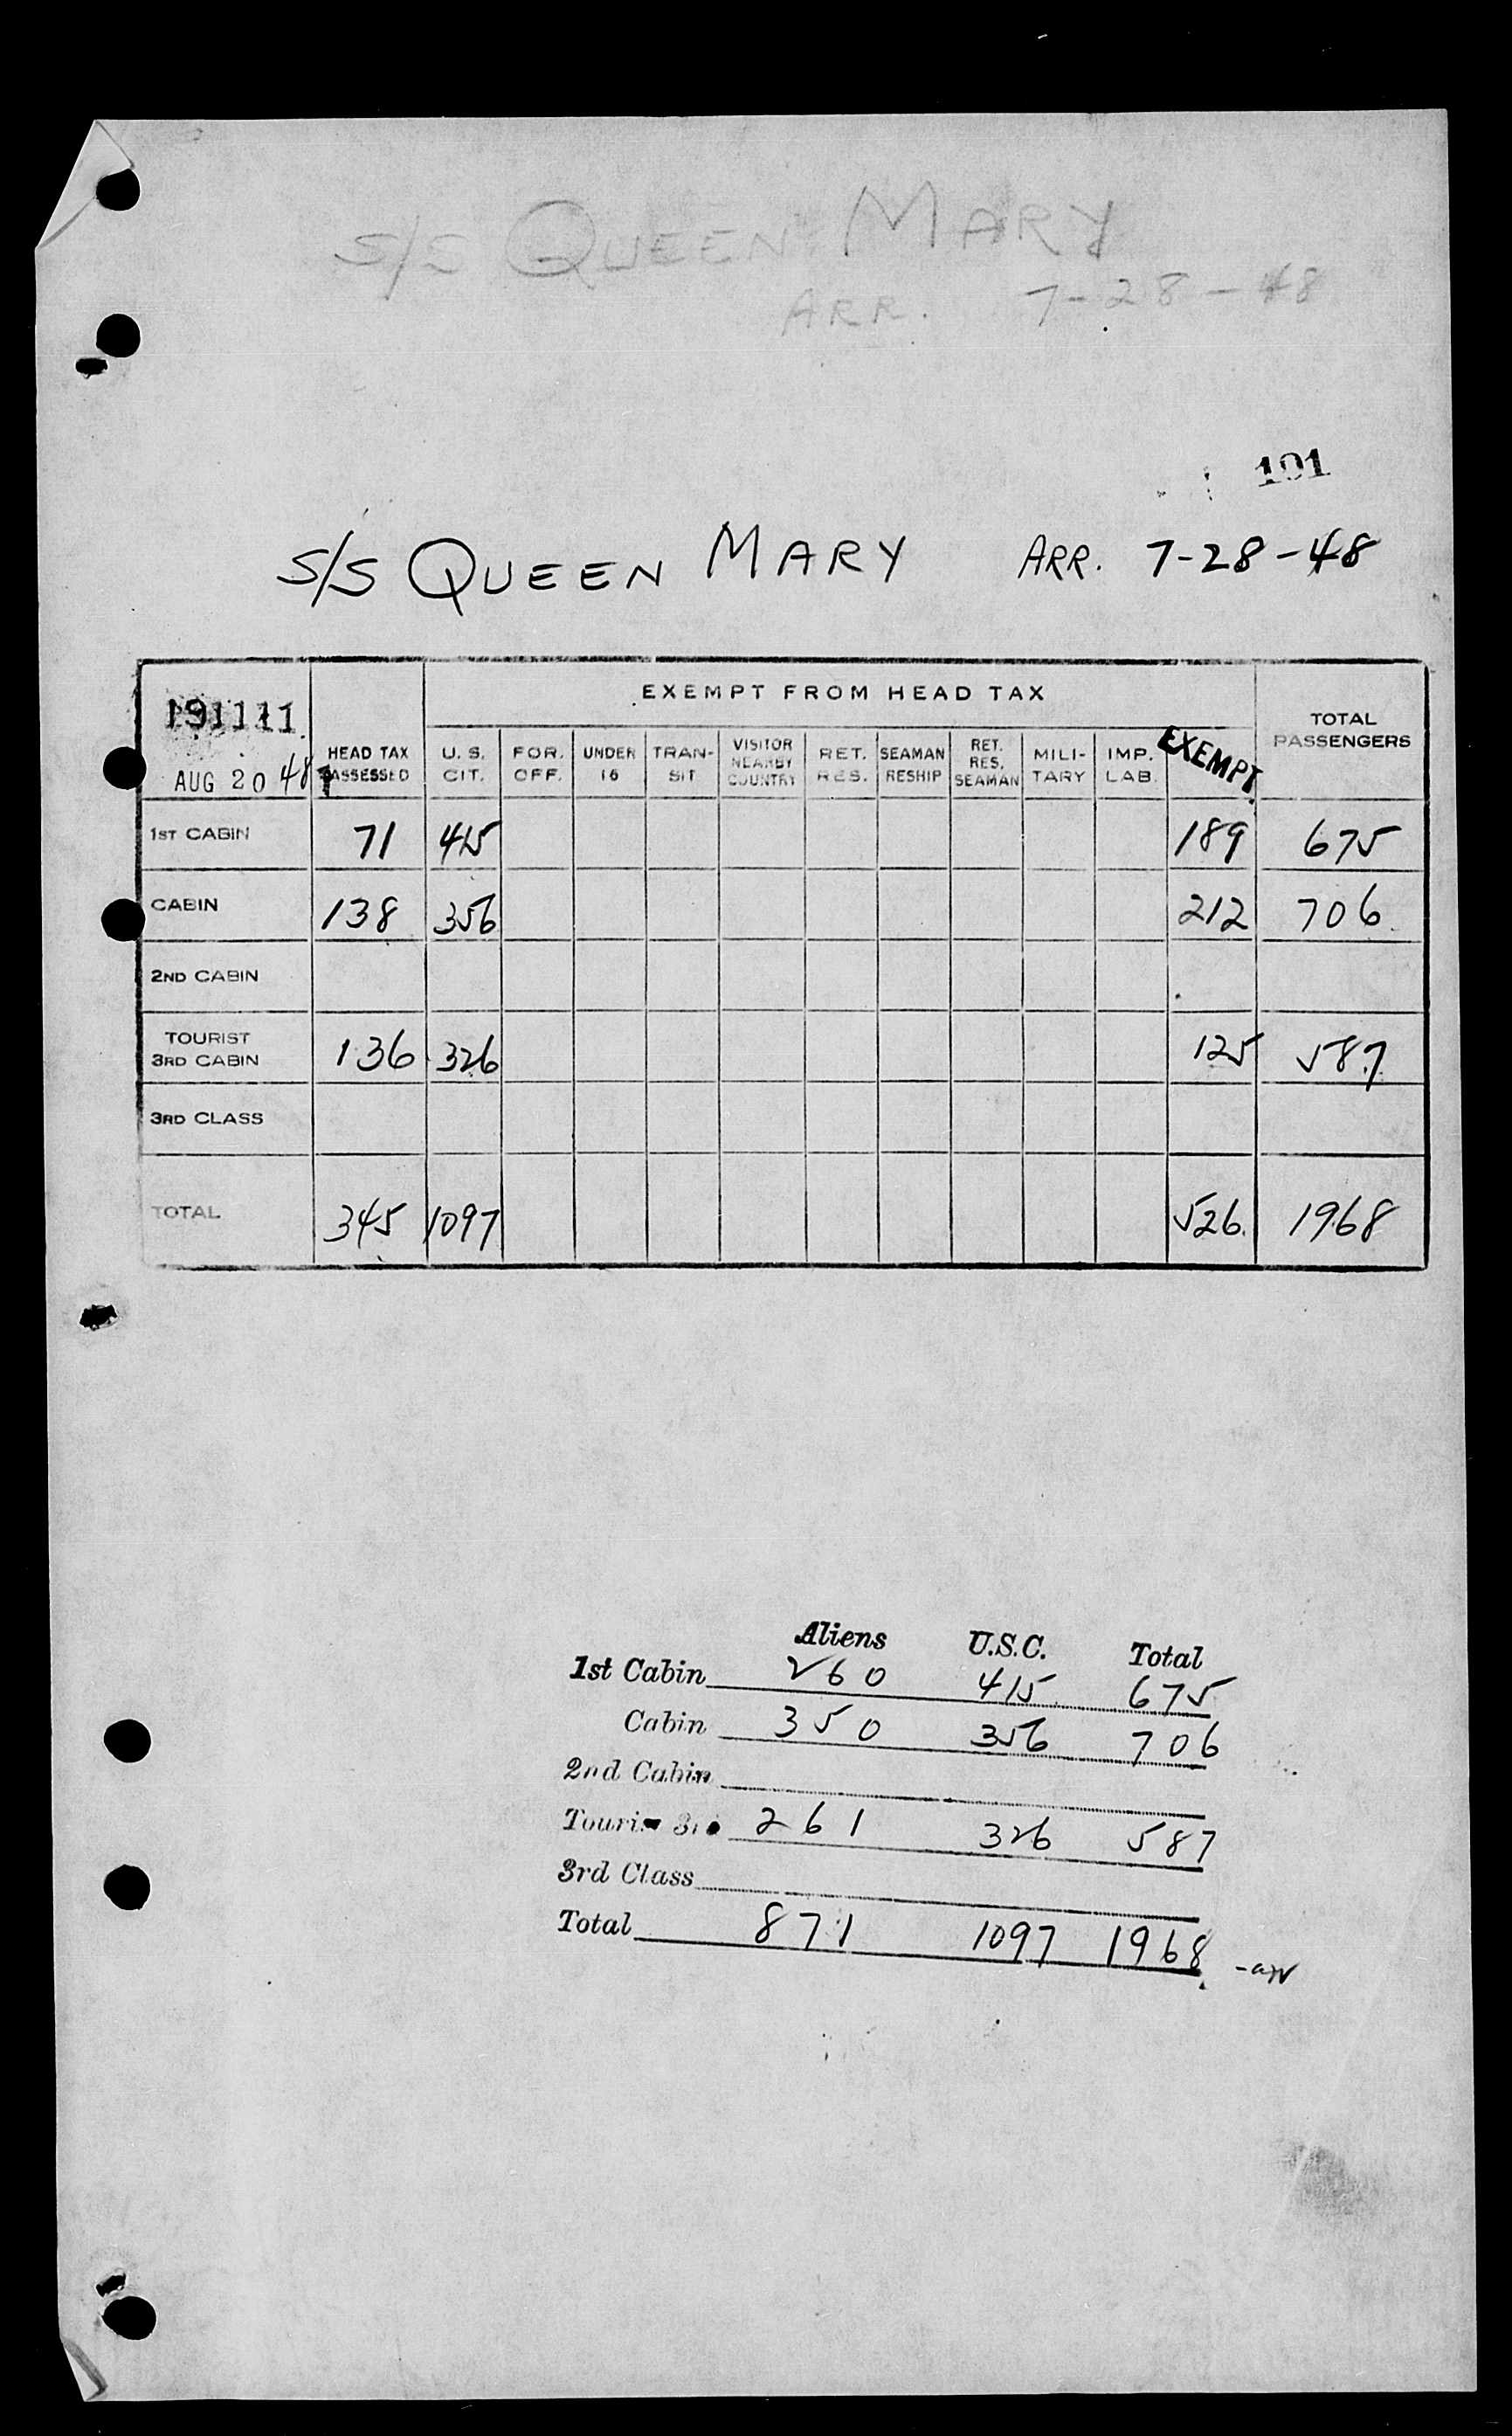 S/S QUEEN MARY
ARR. 7-28-48
191
S/S QUEEN MARY ARR. 7-28-48
191111
AUG 20 48
HEAD TAX ASSESSED
EXEMPT FROM HEAD TAX
U. S. CIT.
FOR. OFF.
UNDER 16
TRAN- SIT
VISITOR NEARBY COUNTRY
RET. RES.
SEAMAN RESHIP
RET. RES. SEAMAN
MILI- TARY
IMP. LAB.
EXEMPT
TOTAL PASSENGERS
1ST CABIN 71 415 189 675
CABIN 138 356 212 706
2ND CABIN
TOURIST
3RD CABIN 136 326 125 587
3RD CLASS
TOTAL 345 1097 526 1968
Aliens U.S.C. Total
1st Cabin 260 415 675
Cabin 350 356 706
2nd Cabin
261 326 587
3rd Class
Total 871 1097 1968